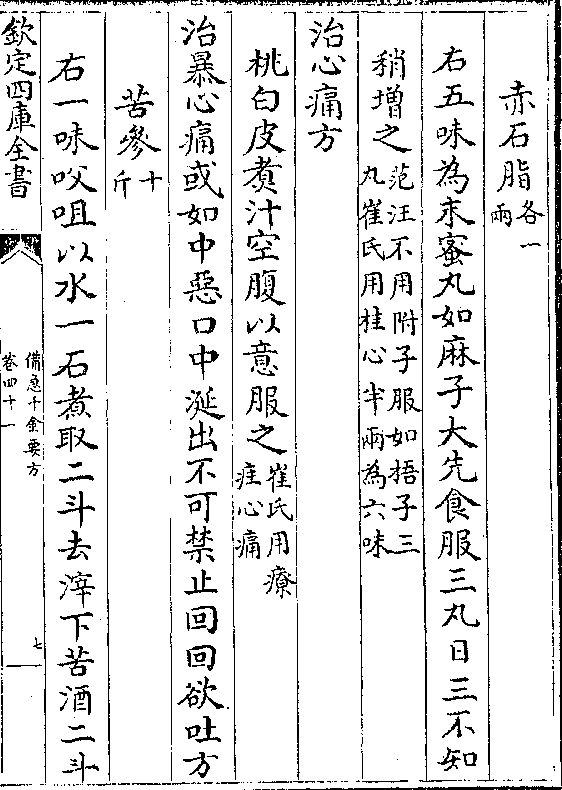 赤石脂各一兩
右五味為末蜜丸如麻子大先食服三丸日三不知
稍增之范汪不用附子服如梧子三丸崔氏用桂心半兩為六味
治心痛方
桃白皮煑汁空腹以意服之崔氏用療疰心痛
治暴心痛或如中惡口中涎出不可禁止回回欲吐方
苦參十斤
右一味㕮咀以水一石煮取二斗去滓下苦酒二斗
欽定四庫全書
備急千金要方
卷四十一
七